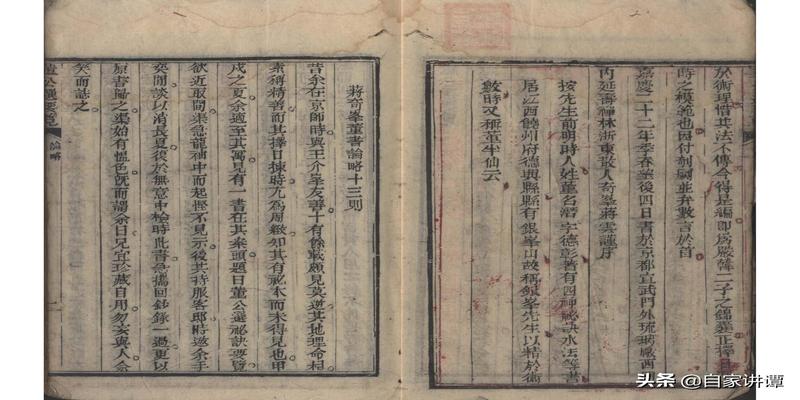 於術理惜其法不傳今得是編即為嚴韓二子之錦囊正擇日
時之模範也因付剞劂並弁數言於首
嘉慶二十二年季春榖後四日書於京都宣武門外琉璃廠西
內延壽禪林浙東散人奇峯蔣雲謹序
按先生前明時人姓董名潛字德彰著有四神祕訣水法等書
居江西饒州府德興縣縣有銀峯山故稱銀峯先生以精於術
數時又稱董半仙云
蔣奇峯董書論略十三則
昔余在京師時與王介峯友善十有餘載願見莫逆其地理命相
素稱精善而其擇日揀時尤為周緻知其有祕本而未得見也甲
戌之夏余適至其寓見有一書在其案頭題曰董公選祕訣要覽
欲近取閱渠急龍袖中而起慳不見示後其持服客邸時邀余手
奕閒談以消長夏復於無意中檢時此書急攜回鈔錄一過更以
原書歸之渠始有慍色既而謂余曰兄宜珍藏自用勿妄與人余
笑而誌之
論略
頭条 @自家讲谭